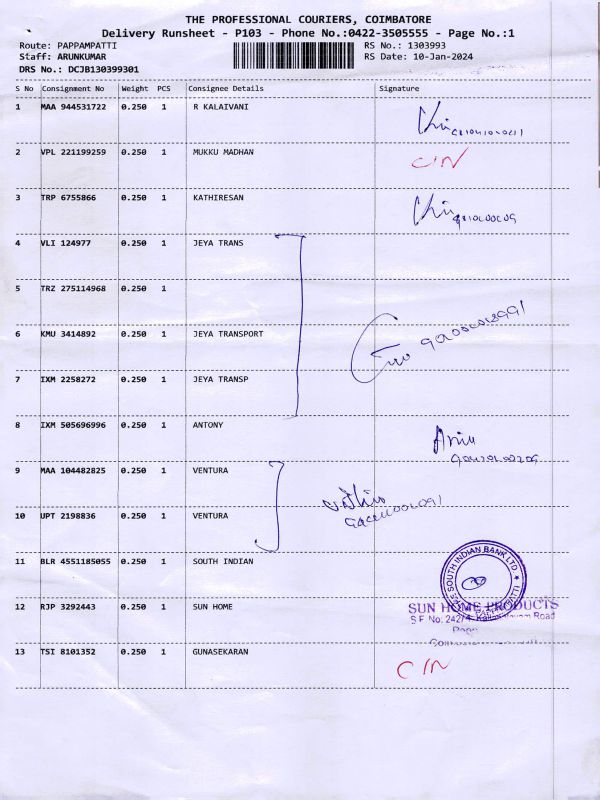 THE PROFESSIONAL COURIERS, COIMBATORE
Delivery Runsheet - P103 - Phone No.:0422-3505555 - Page No.:1
Route: PAPPAMPATTI RS No.: 1303993
Staff: ARUNKUMAR RS Date: 10-Jan-2024
DRS No.: DCJB130399301
S No Consignment No Weight PCS Consignee Details Signature
1 MAA 944531722 0.250 1 R KALAIVANI
2 VPL 221199259 0.250 1 MUKKU MADHAN C/N
3 TRP 6755866 0.250 1 KATHIRESAN
4 VLI 124977 0.250 1 JEYA TRANS
5 TRZ 275114968 0.250 1
6 KMU 3414892 0.250 1 JEYA TRANSPORT
7 IXM 2258272 0.250 1 JEYA TRANSP
8 IXM 505696996 0.250 1 ANTONY
9 MAA 104482825 0.250 1 VENTURA
10 UPT 2198836 0.250 1 VENTURA
11 BLR 4551185055 0.250 1 SOUTH INDIAN
THE SOUTH INDIAN BANK LTD
12 RJP 3292443 0.250 1 SUN HOME SUN HOME PRODUCTS
S F No: 242/4 Road
13 TSI 8101352 0.250 1 GUNASEKARAN C/N